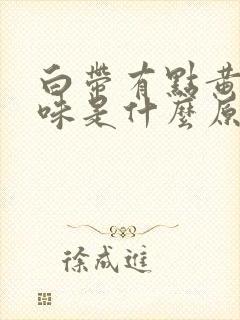 白帶有點黃
味是什麼原
徐成進